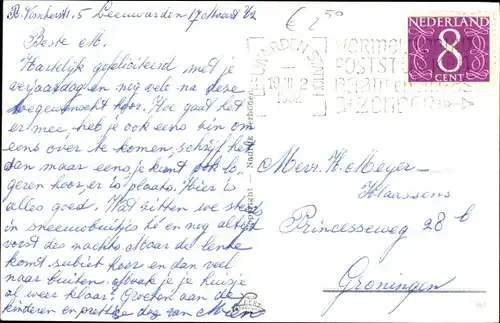 Leeuwarden, 17 Maart '62
€ 2,50
Beste M.
Hartelijk gefeliciteerd met je
verjaardag en nog vele na deze
toegewenscht hoor. Hoe gaat het
er mee, heb je ook eens zin om
eens over te komen, schrijf het
dan maar eens, je kunt ook lo
geren hoor, er is plaats. Hier is
alles goed. Wat zitten we steeds
in sneeuwbuitjes hè en nog altijd
vorst des nachts. Maar de lente
komt subiet hoor en dan veel
naar buiten. je je huisje
al weer klaar? Groeten aan de
kinderen en prettige dag van
NEDERLAND
8
CENT
LEEUWARDEN
19.III
1962
NORMAL
POSTST
BIJZONDER
Copyright Nadruk Verboden
Mevr. H. Meyer-
Klaassens
Princesseweg 28 b
Groningen